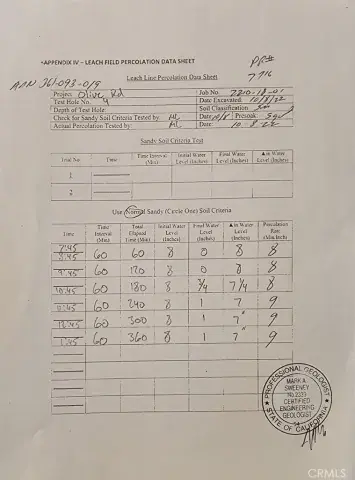 *APPENDIX IV – LEACH FIELD PERCOLATION DATA SHEET
PR#
7716
APN 361-093-019
Leach Line Percolation Data Sheet
Project: Olive Rd Job No. 2210-18-01
Test Hole No. 4 Date Excavated: 10/8/22
Depth of Test Hole: Soil Classification:
Check for Sandy Soil Criteria Tested by: Date: Presoak:
Actual Percolation Tested by: Date: 10.8.22
Sandy Soil Criteria Test
Trial No. Time Time Interval (Min) Initial Water Level (Inches) Final Water Level (Inches) ▲in Water Level (Inches)
1
2
Use Normal Sandy (Circle One) Soil Criteria
Time Time Interval (Min) Total Elapsed Time (Min) Initial Water Level (Inches) Final Water Level (Inches) ▲in Water Level (Inches) Percolation Rate (Min/Inch)
7:45
8:45 60 60 8 0 8 8
9:45 60 120 8 0 8 8
10:45 60 180 8 3/4 7 1/4 8
11:45 60 240 8 1 7 9
12:45 60 300 8 1 7" 9
1:45 60 360 8 1 7" 9
PROFESSIONAL GEOLOGIST
MARK A.
SWEENEY
No.2333
CERTIFIED
ENGINEERING
GEOLOGIST
STATE OF CALIFORNIA
CRMLS